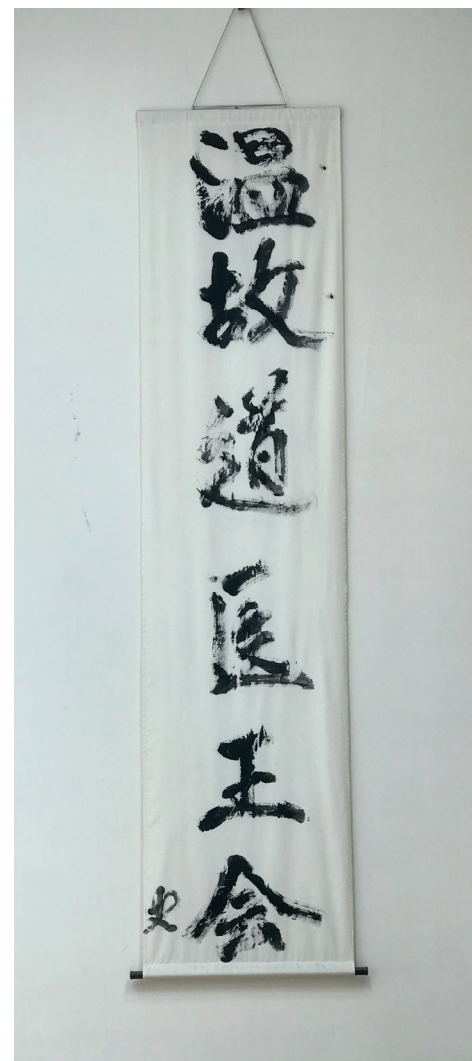 温故道医王会